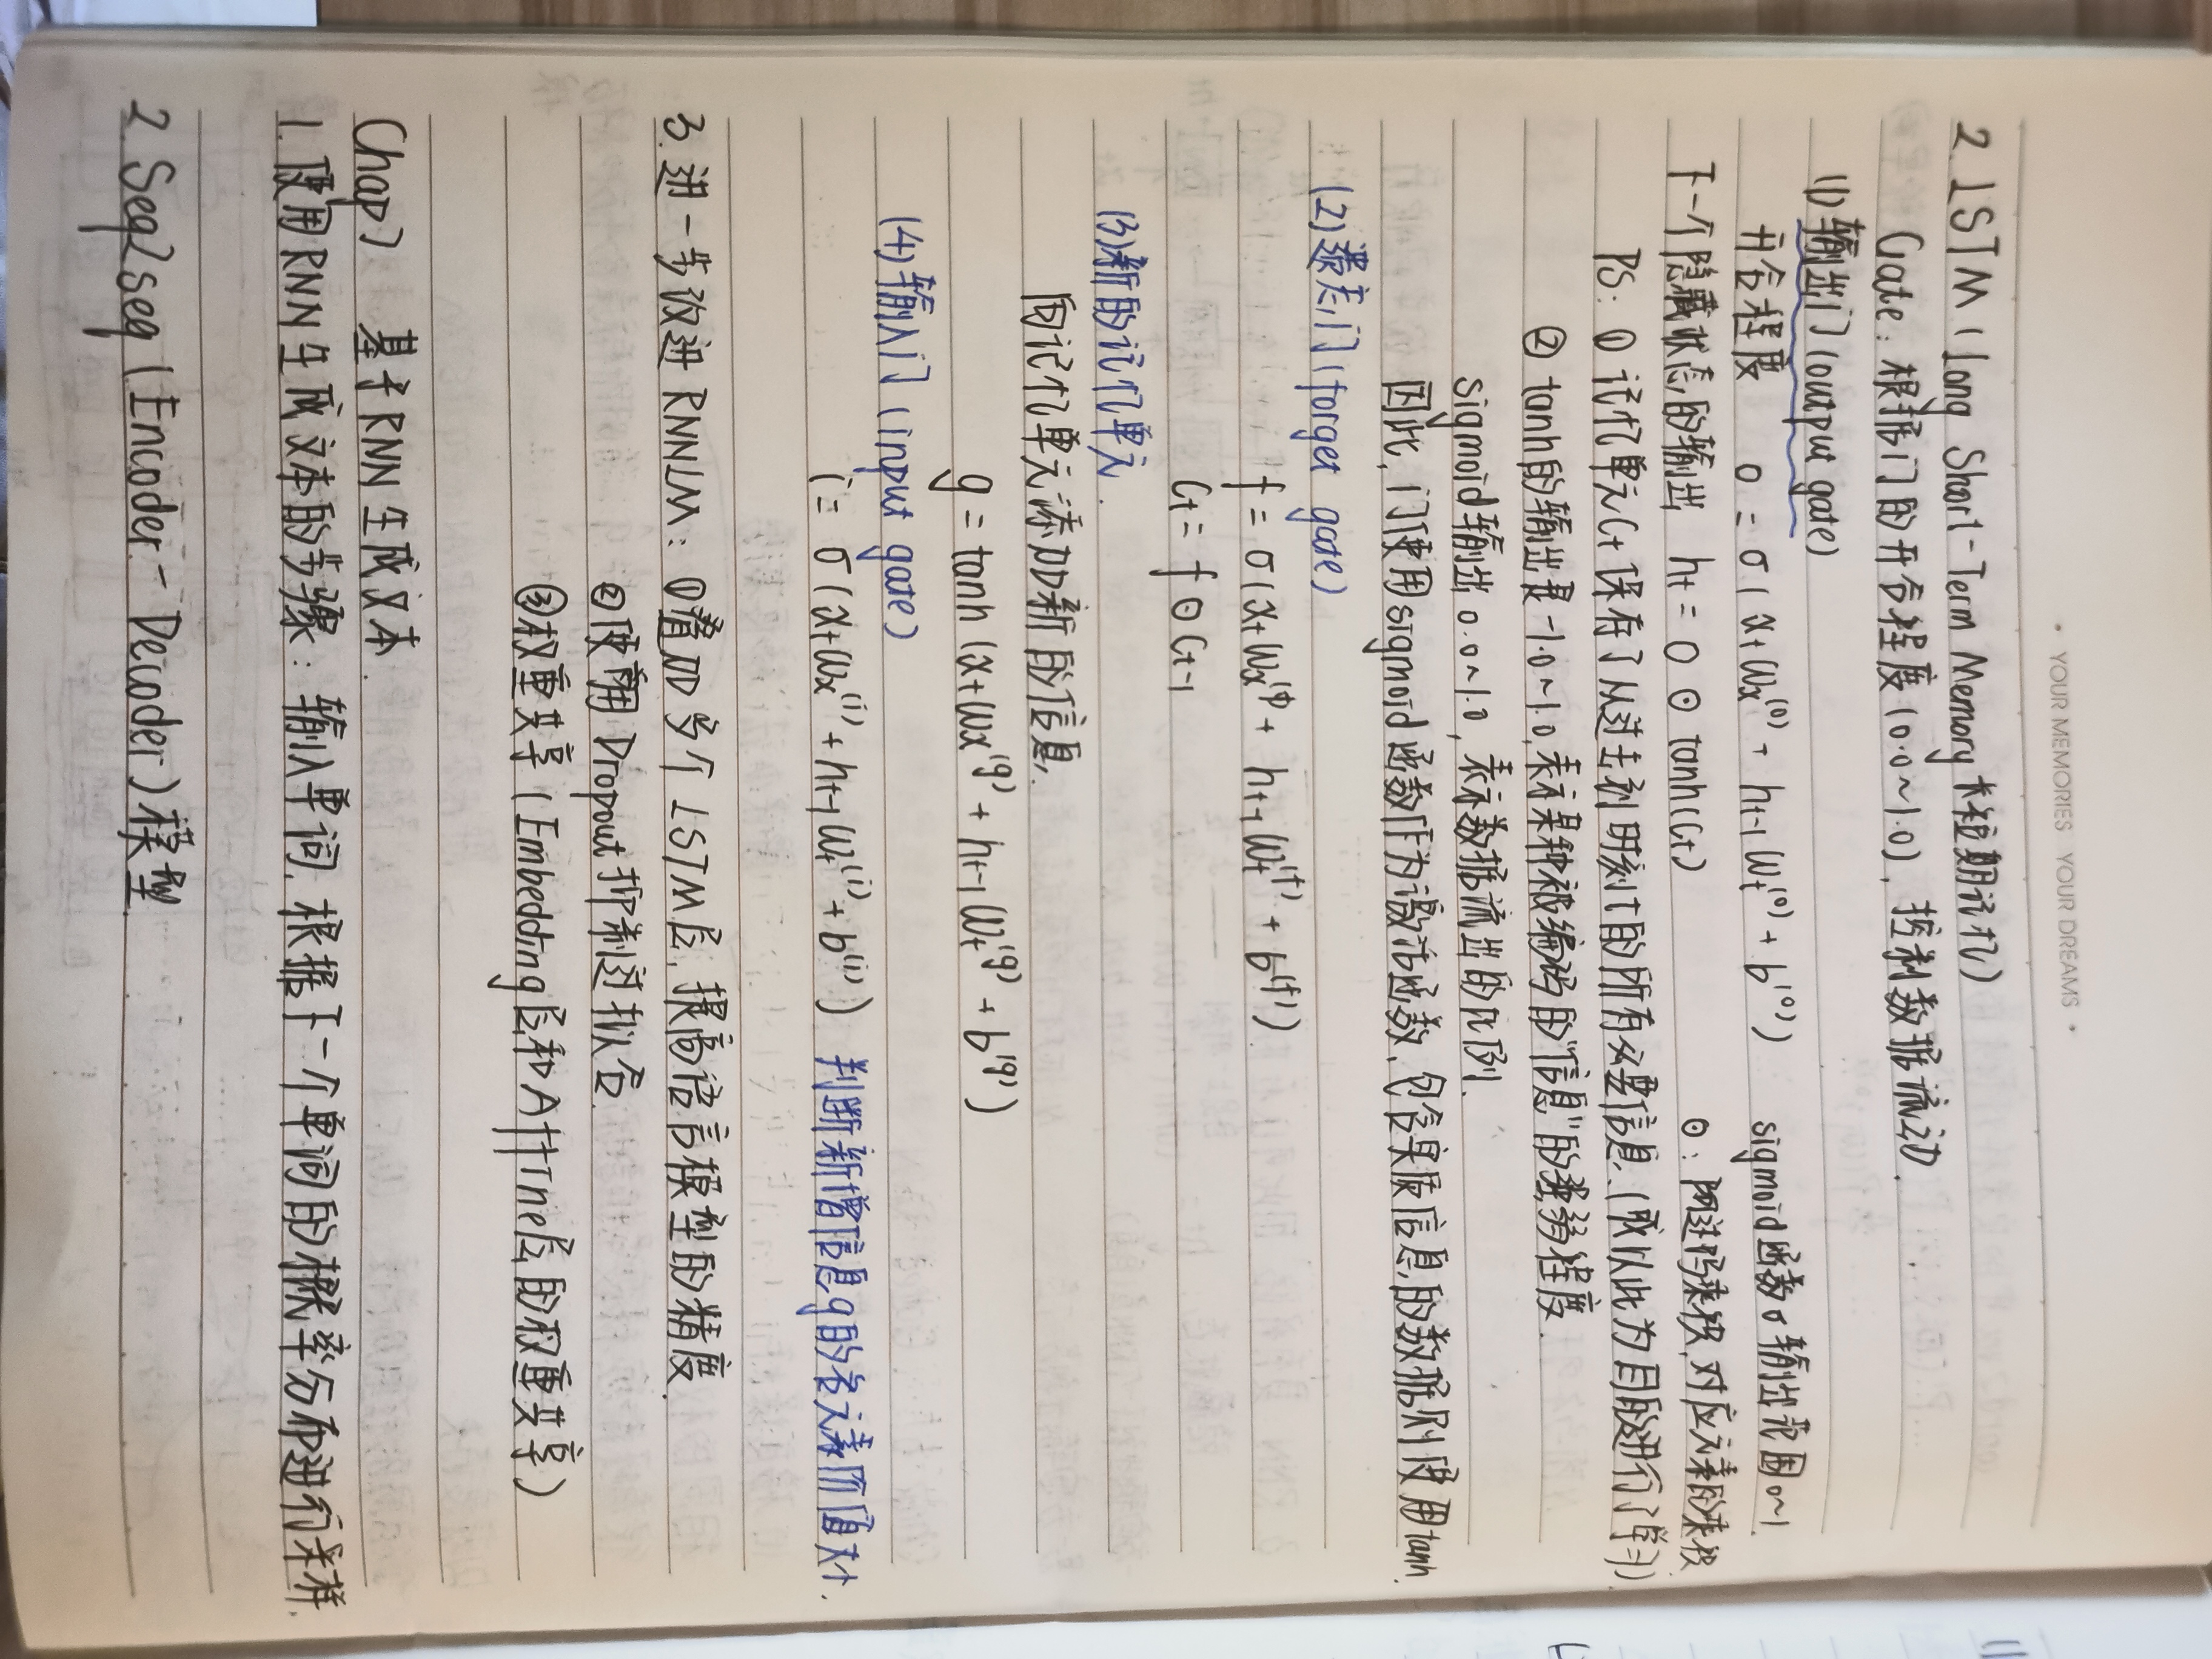 • YOUR MEMORIES YOUR DREAMS •
2. LSTM (Long Short-Term Memory 长短期记忆)
Gate: 根据门的开合程度 (0.0~1.0), 控制数据流动.
(1) 输出门 (output gate)
开合程度 o = σ ( xt Wx(o) + ht-1 Wt(o) + b(o) ) sigmoid函数σ输出范围0~1
下一个隐藏状态的输出 ht = o ⊙ tanh(Ct) ⊙: 阿达玛乘积, 对应元素的乘积
PS: ① 记忆单元Ct保存了从过去到时刻t的所有必要信息, (或以此为目的进行了学习)
② tanh的输出是 -1.0~1.0, 表示某种被编码的"信息"的强弱程度.
sigmoid输出 0.0~1.0, 表示数据流出的比例.
因此, 门使用sigmoid函数作为激活函数, 包含实质信息的数据则使用tanh.
(2) 遗忘门 (forget gate)
f = σ ( xt Wx(f) + ht-1 Wt(f) + b(f) )
Ct = f ⊙ Ct-1
(3) 新的记忆单元.
向记忆单元添加新的信息.
g = tanh (xt Wx(g) + ht-1 Wt(g) + b(g) )
(4) 输入门 (input gate)
i = σ ( xt Wx(i) + ht-1 Wt(i) + b(i) ) 判断新增信息g的各元素价值大小.
3. 进一步改进 RNNLM: ①叠加多个 LSTM层, 提高语言模型的精度.
②使用 Dropout 抑制过拟合.
③权重共享 ( Embedding层和 Affine层的权重共享 )
Chap7 基于RNN生成文本.
1. 使用RNN生成文本的步骤: 输入单词, 根据下一个单词的概率分布进行采样.
2. Seq2seq (Encoder-Decoder) 模型.